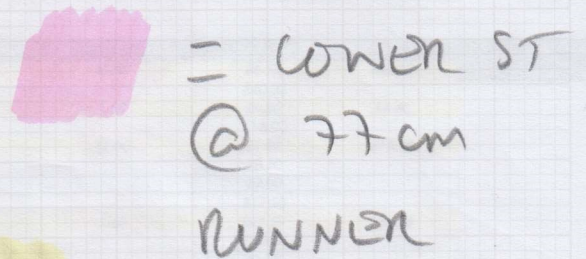 = LOWER ST
@ 77 cm
RUNNER